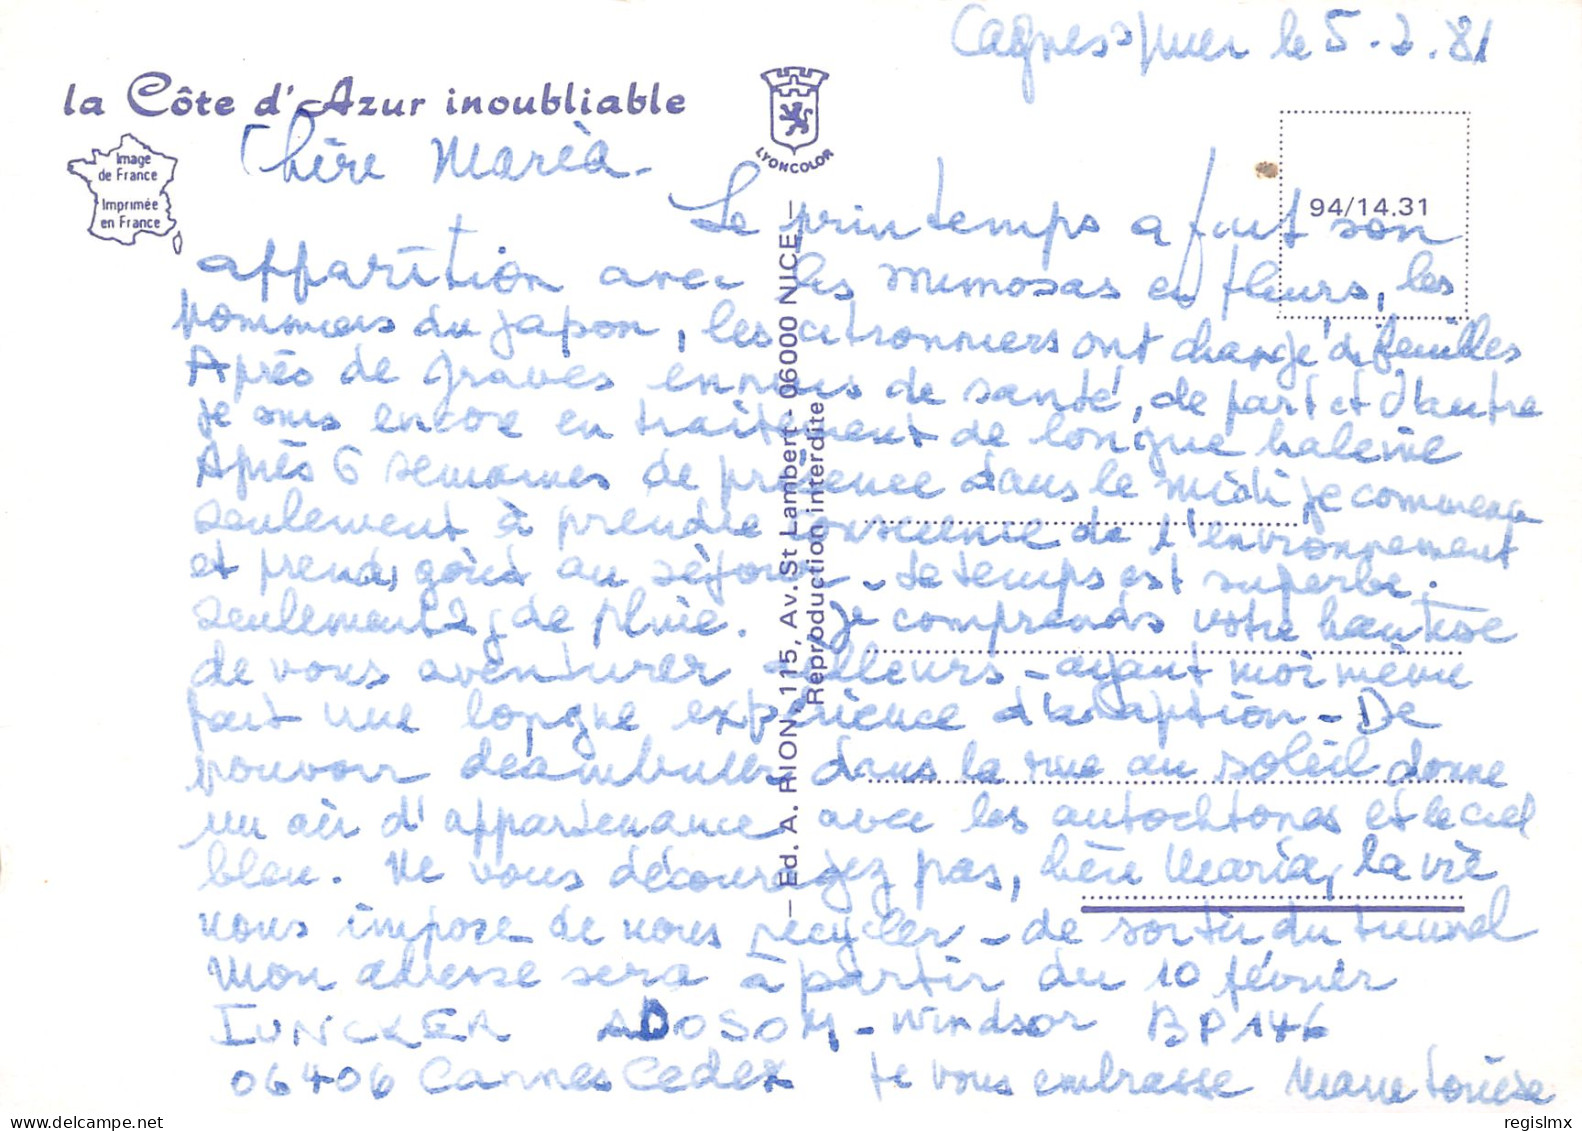 Cagnes s/mer le 5.2.81
la Côte d'Azur inoubliable
LYONCOLOR
Image
de France
Imprimée
en France
94/14.31
Chère Maria.
Le printemps a fait son
apparition avec les mimosas en fleurs, les
pommiers du japon, les citronniers ont changé de feuilles
Après de graves ennuis de santé, de part et d'autre
je suis encore en traitement de longue haleine
Après 6 semaines de présence dans le midi je commence
seulement à prendre conscience de l'environnement
et prends goût au séjour - le temps est superbe.
seulement 2 j de pluie. Je comprends votre hantise
de vous aventurer ailleurs - ayant moi même
fait une longue expérience d'adaption - De
pouvoir déambuler dans la rue au soleil donne
un air d'appartenance avec les autochtones et le ciel
bleu. Ne vous découragez pas, chère Maria, la vie
nous impose de nous recycler - de sortir du tunnel
Mon adresse sera à partir du 10 février
IUNCKER ADOSOM - Windsor BP 146
06406 Cannes Cedex Je vous embrasse Marie Louise
— Ed. A. RION, 115, Av. St Lambert - 06000 NICE —
Reproduction interdite
regislmx